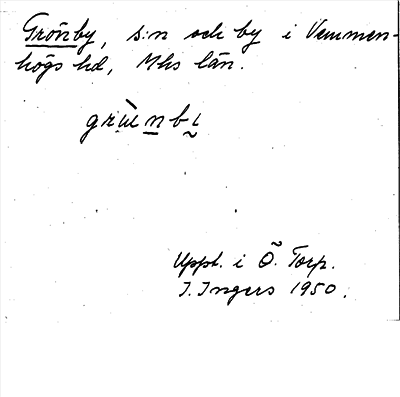 Grönby, s:n och by i Vemmen-
högs hd, Mhs län.
Uppt. i Ö. Torp.
I. Ingers 1950.